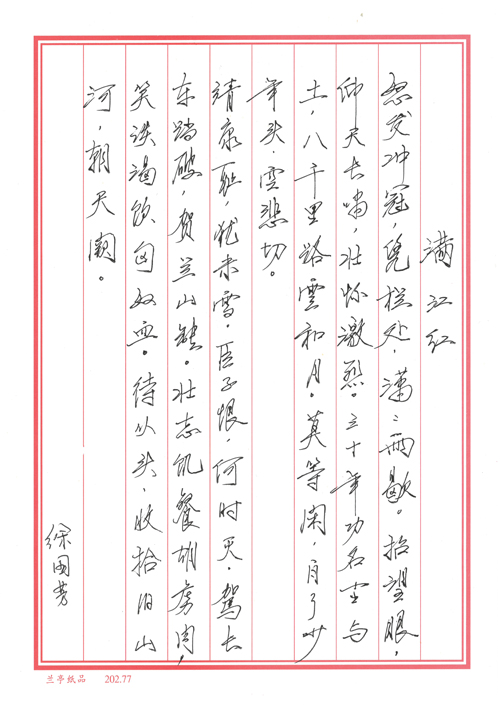 满江红
怒发冲冠，凭栏处，潇〻雨歇。抬望眼，
仰天长啸，壮怀激烈。三十年功名尘与
土，八千里路雲和月。莫等闲，白了少
年头，空悲切。
靖康耻，犹未雪，臣子恨，何时灭，驾长
车踏破，贺兰山缺。壮志饥餐胡虏肉，
笑谈渴饮匈奴血。待从头，收拾旧山
河，朝天阙。
徐国芳
兰亭纸品 202.77